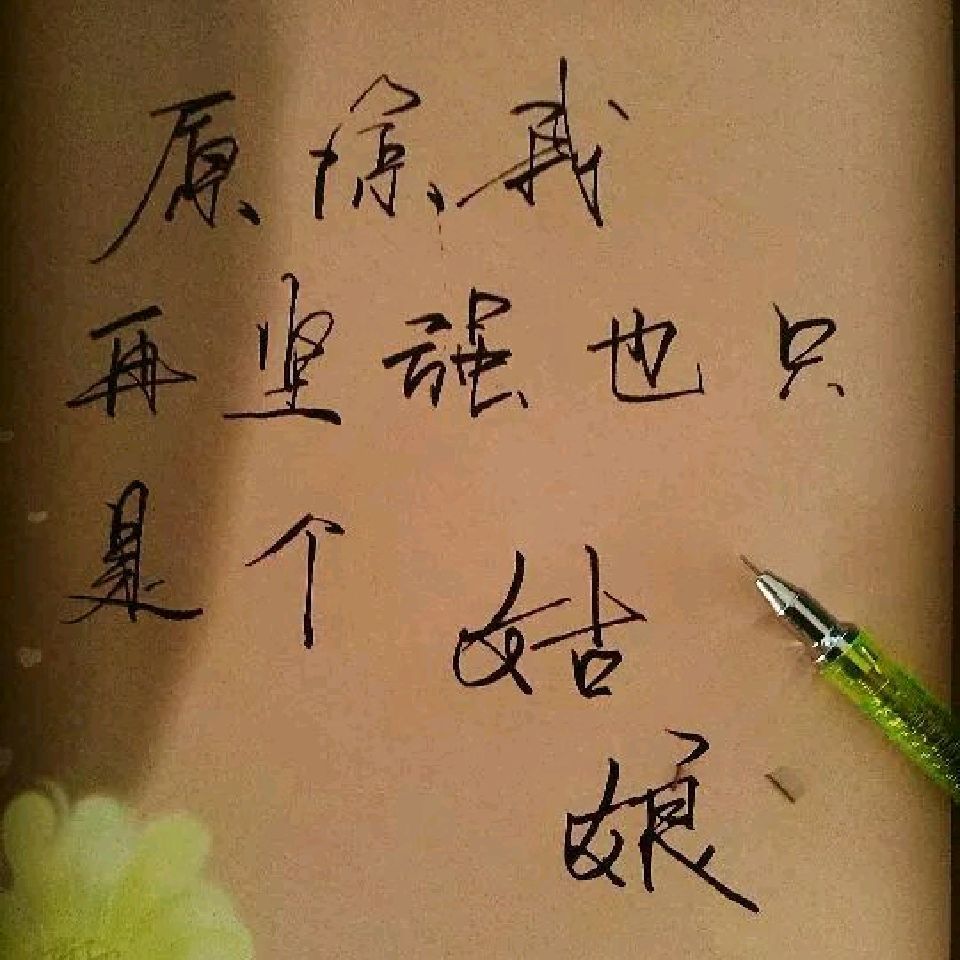 原谅我
再坚强也只
是个姑
娘